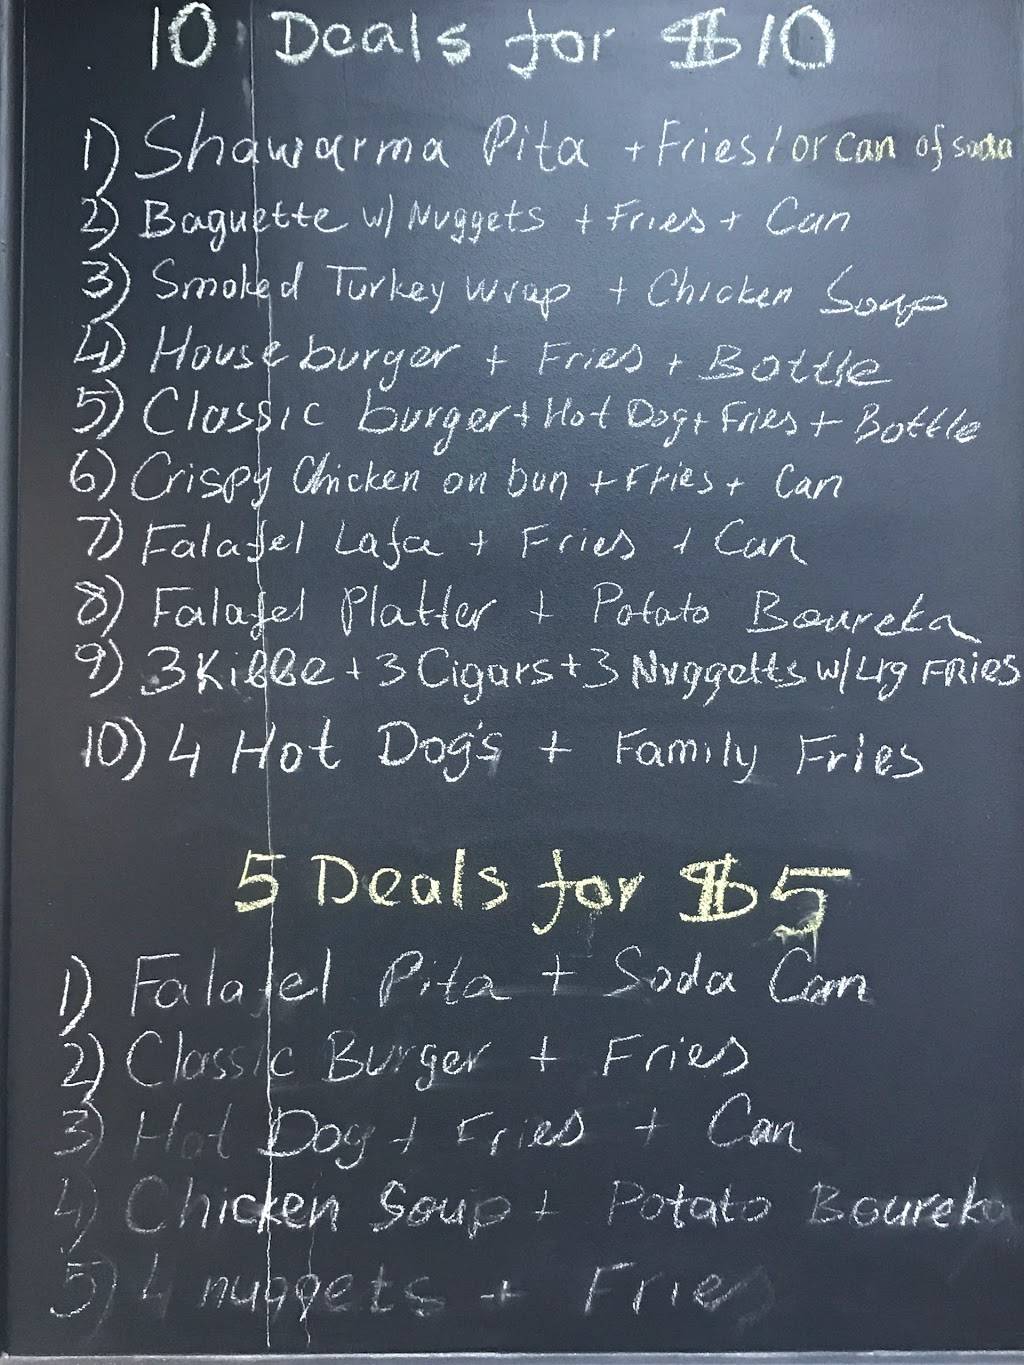 10 Deals for $10
1) Shawarma Pita + Fries/or can of soda
2) Baguette w/ Nuggets + Fries + Can
3) Smoked Turkey wrap + Chicken Soup
4) House burger + Fries + Bottle
5) Classic burger + Hot Dog + Fries + Bottle
6) Crispy Chicken on bun + Fries + Can
7) Falafel Lafa + Fries + Can
8) Falafel Platter + Potato Boureka
9) 3 Kibbe + 3 Cigars + 3 Nuggetts w/ Lrg FRIES
10) 4 Hot Dog's + Family Fries
5 Deals for $5
1) Falafel Pita + Soda Can
2) Classic Burger + Fries
3) Hot Dog + Fries + Can
4) Chicken Soup + Potato Boureka
5) 4 nuggets + Fries